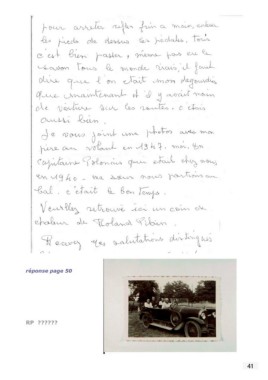 pour arreter
le pieds de dessus les pedales, tout
c'est bien passer, meme pas eu le
tous le monde riais, il faut
dire que l'on etait moin degourdis
que maintenant et il y avait moin
de voiture sur les routes. c'etais
aussi bien.
Je vous joint une photos avec ma
pere au volant en 1947.
capitaine Polonais qui etait chez nous
en 1940. ma sœur nous partions au
bal. c'était le bon temps.
Veuillez retrouvé ici un coin de
chaleur de Roland
Recevez mes salutations distingués
réponse page 50
RP ??????
41